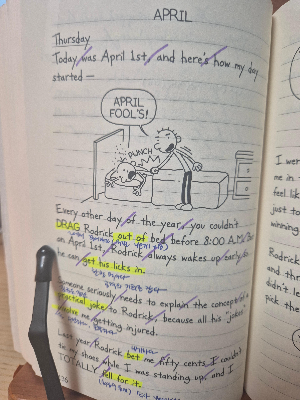 APRIL
Thursday
Today was April 1st, and here's how my day
started—
APRIL
FOOL'S!
PUNCH
Every other day of the year, you couldn't
DRAG Rodrick out of bed before 8:00 A.M. But
on April 1st, Rodrick always wakes up early so
he can get his licks in.
Someone seriously needs to explain the concept of a
practical joke to Rodrick, because all his "jokes"
involve me getting injured.
Last year, Rodrick bet me fifty cents I couldn't
tie my shoes while I was standing up, and I
TOTALLY fell for it.
I were
me in
feel lik
just to
winning
Rodrick
and th
didn't le
pick the